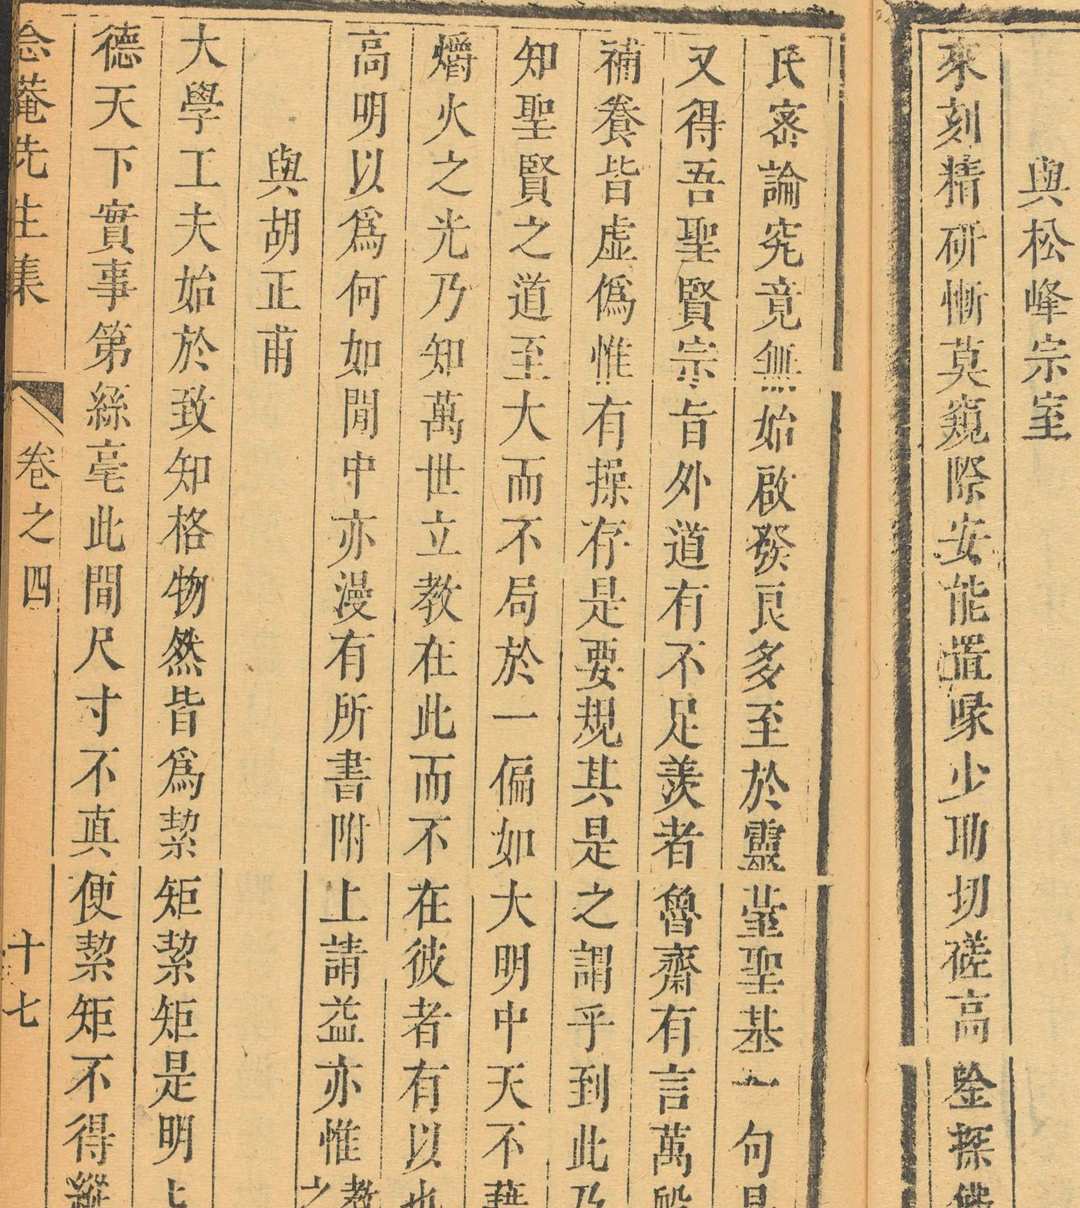 與松峰宗室
來刻精研慚莫窺際安能置喙少助切磋高鉴探佛
氏密論究竟無始啟發良多至於靈臺聖基一句是
又得吾聖賢宗旨外道有不足羨者魯齋有言萬般
補養皆虛僞惟有操存是要規其是之謂乎到此乃
知聖賢之道至大而不局於一偏如大明中天不藉
爝火之光乃知萬世立教在此而不在彼者有以也
高明以爲何如閒中亦漫有所書附上請益亦惟教之
與胡正甫
大學工夫始於致知格物然皆爲絜矩絜矩是明
德天下實事第絲毫此間尺寸不真便絜矩不得縱
念菴先生集
卷之四
十七